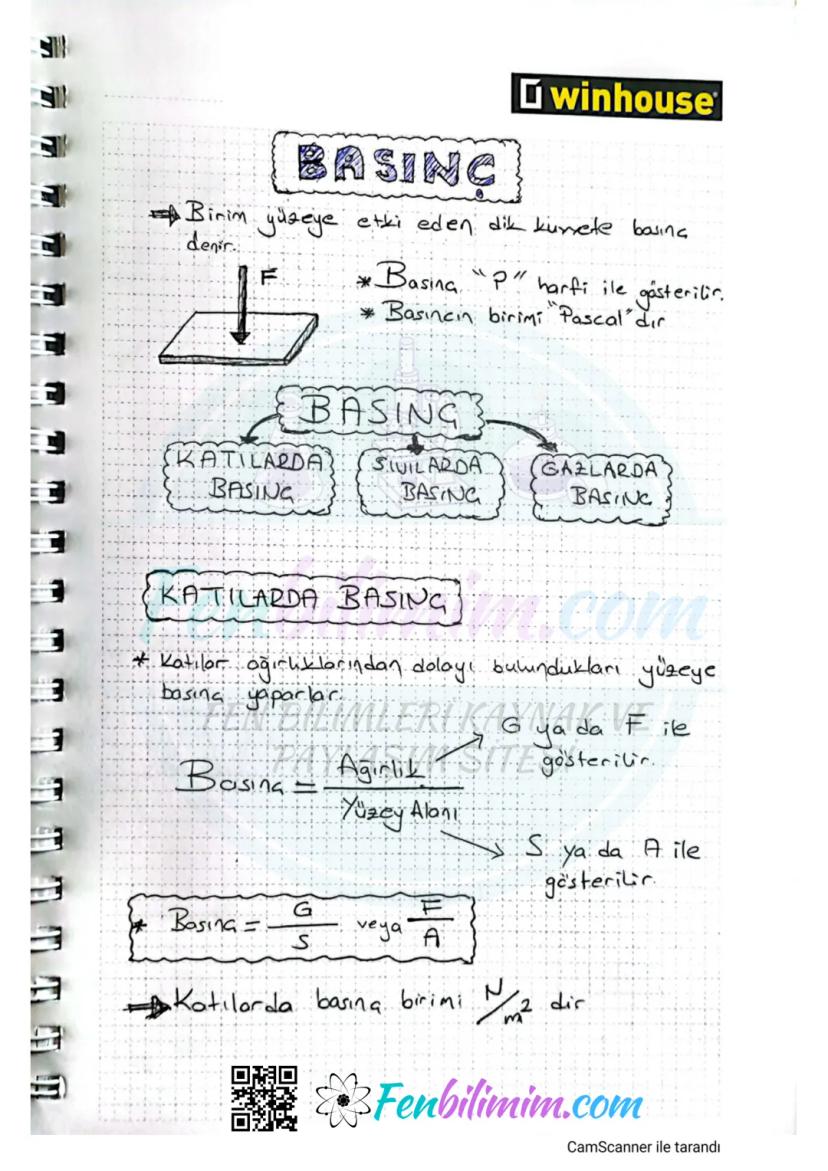 winhouse
BASINÇ
⇒ Birim yüzeye etki eden dik kuvvete basınç
denir.
F
* Basınç "P" harfi ile gösterilir.
* Basıncın birimi "Pascal"dır
BASINÇ
KATILARDA
BASINÇ
SIVILARDA
BASINÇ
GAZLARDA
BASINÇ
KATILARDA BASINÇ
Fenbilimim.com
* Katılar ağırlıklarından dolayı bulundukları yüzeye
basınç yaparlar.
FEN BİLİMLERİ KAYNAK VE
PAYLAŞIM SİTESİ
G ya da F ile
gösterilir.
Basınç = Ağırlık / Yüzey Alanı
S ya da A ile
gösterilir.
* Basınç = G / S veya F / A
⇒ Katılarda basınç birimi N/m² dir
Fenbilimim.com
CamScanner ile tarandı